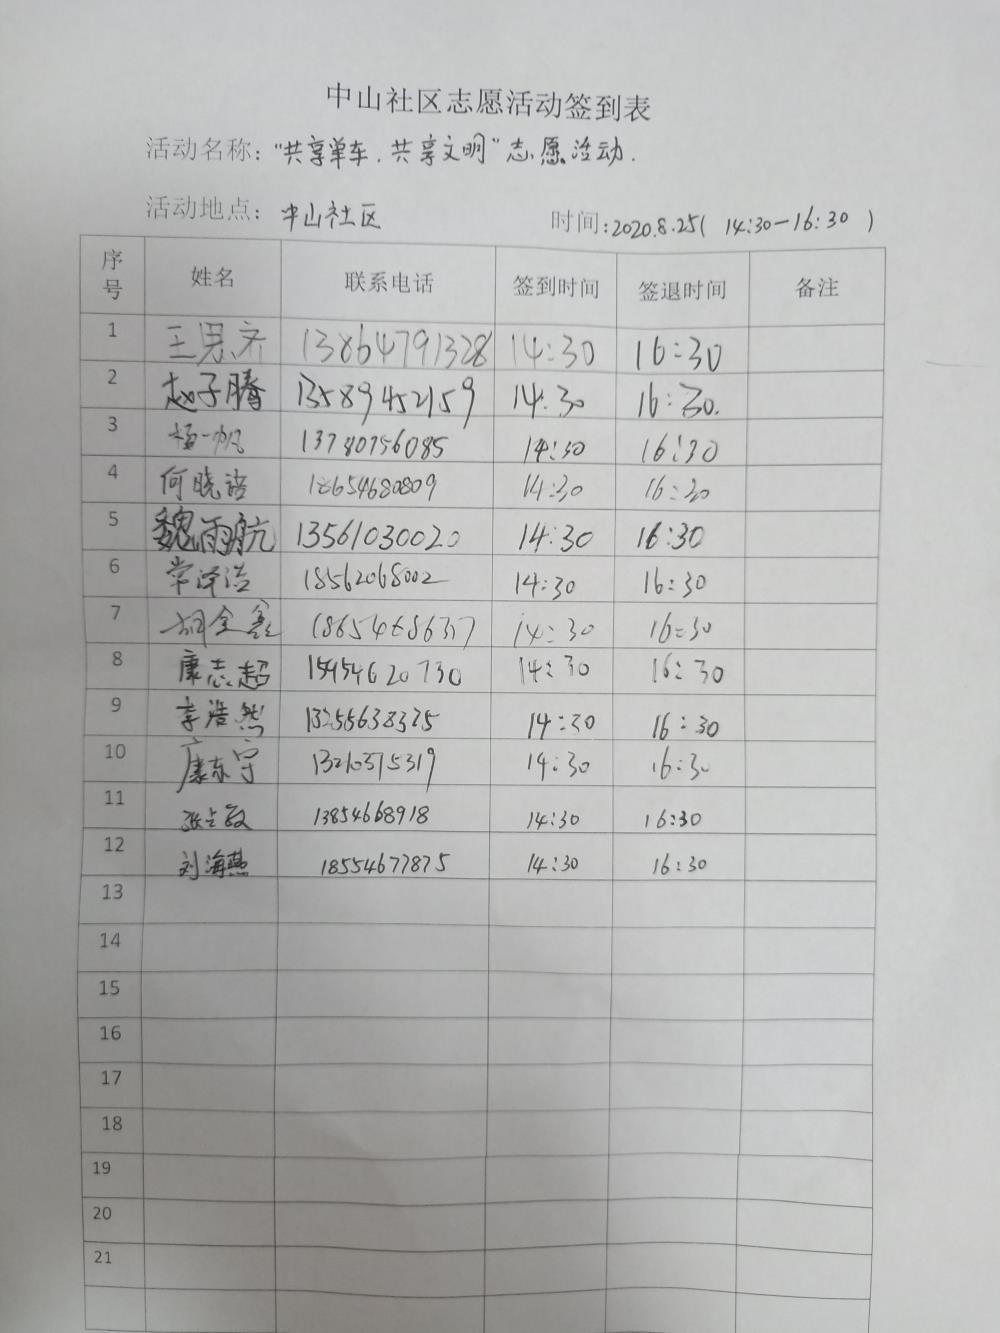 中山社区志愿活动签到表
活动名称："共享单车.共享文明"志愿活动.
活动地点：中山社区 时间：2020.8.25( 14:30-16:30 )
序号 姓名 联系电话 签到时间 签退时间 备注
1 王思齐 13864791328 14:30 16:30
2 赵子腾 13589452159 14:30 16:30.
3 杨一帆 13780756085 14:30 16:30
4 何晓语 18654680809 14:30 16:30
5 魏雨航 13561030020 14:30 16:30
6 常泽浩 18562068002 14:30 16:30
7 胡金 14:30 16:30
8 康志超 15454620730 14:30 16:30
9 李浩然 13255638325 14:30 16:30
10 康东宁 13210375319 14:30 16:30
11 13854668918 14:30 16:30
12 刘海燕 18554677875 14:30 16:30
13
14
15
16
17
18
19
20
21